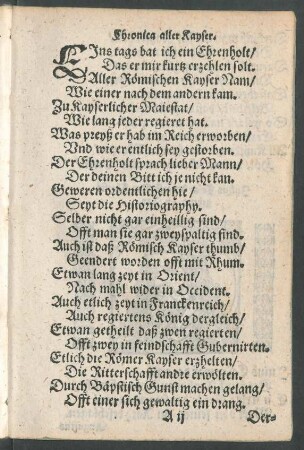 Chronica aller Kayser.
EIns tags bat ich ein Ehrenholt/
Das er mir kurtz erzehlen solt.
Aller Römischen Kayser Nam/
Wie einer nach dem andern kam.
Zu Kayserlicher Maiestat/
Wie lang jeder regieret hat.
Was preyß er hab im Reich erworben/
Vnd wie er entlich sey gestorben.
Der Ehrenholt sprach lieber Mann/
Der deinen Bitt ich je nicht kan.
Geweren ordentlichen hie/
Seyt die Historiography.
Selber nicht gar einhellig sind/
Offt man sie gar zweyspaltig find.
Auch ist daß Römisch Kayserthumb/
Geendert worden offt mit Rhum.
Etwan lang zeyt in Orient/
Nach mahl wider in Occident.
Auch etlich zeyt in Franckenreich/
Auch regiertens König dergleich/
Etwan getheilt daß zwen regierten/
Offt zwey in feindschafft Gubernirten.
Etlich die Römer Kayser erzhelten/
Die Ritterschafft andre erwölten.
Durch Bäpstisch Gunst machen gelang/
Offt einer sich gewaltig ein drang.
A ij Der-